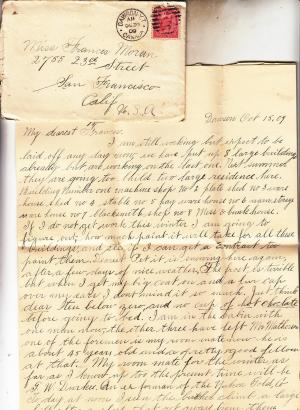 DAWSON Y.T.
AM
09
CANADA
Miss Frances Moran
2755 23rd
Street
San Francisco
Calif
U.S.A
Dawson Oct 15.09
My dearest Frances
I am still working but expect to be
laid off any day now, we have put up 8 large buildings
already but are working on the last one. Next summer
they are going to build two large residence here.
Building Number one machine shop No 2 plate shed no 3 ware
house shed no 4 stable no 5 ware house no 6
ware house no 7 blacksmith shop no 8 Mess & bunk house.
If I do not get work this winter I am going to
figure on how much paint it will take for all these
buildings and etc. if I can get a contract to
paint them. Dearest Pet it is snowing here again,
after a few days of nice weather. The post is terrible
but when I get my big coat on and a fur cap
over my ears I dont mind it so much. Just think
dear ten below zero, and no cup of hot chocolate
before going to bed. I am in the cabin with
one man now, the other three have left. Wm Matheson
one of the foremen is my room mate now. he is
about 45 years old and a pretty good fellow
at that. My room mate for the winter as
far as I know up to the present time will be
G. W. an ex forman of the Yukon Gold Co